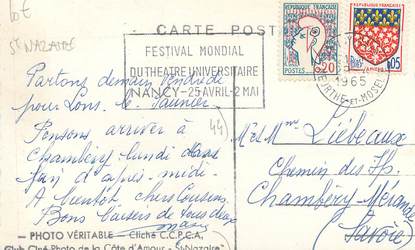 St NAZAIRE
CARTE POSTALE
REPUBLIQUE FRANÇAISE
POSTES
0,20
REPUBLIQUE FRANÇAISE
AMIENS
0,05
FESTIVAL MONDIAL
DU THEATRE UNIVERSITAIRE
NANCY - 25 AVRIL - 2 MAI
1965
MEURTHE-ET-MOSELLE
Partons demain vendredi
pour Lons le Saunier.
Pensons arriver à
Chambéry lundi dans
fin d'après-midi.
A bientôt, chers Cousins
Bons baisers de vous deux
(44)
M et Mme Liébeaux
Chemin des
Chambéry-
Savoie
PHOTO VÉRITABLE - Cliché C.C.P.C.A.
Club Ciné Photo de la Côte d'Amour - St-Nazaire